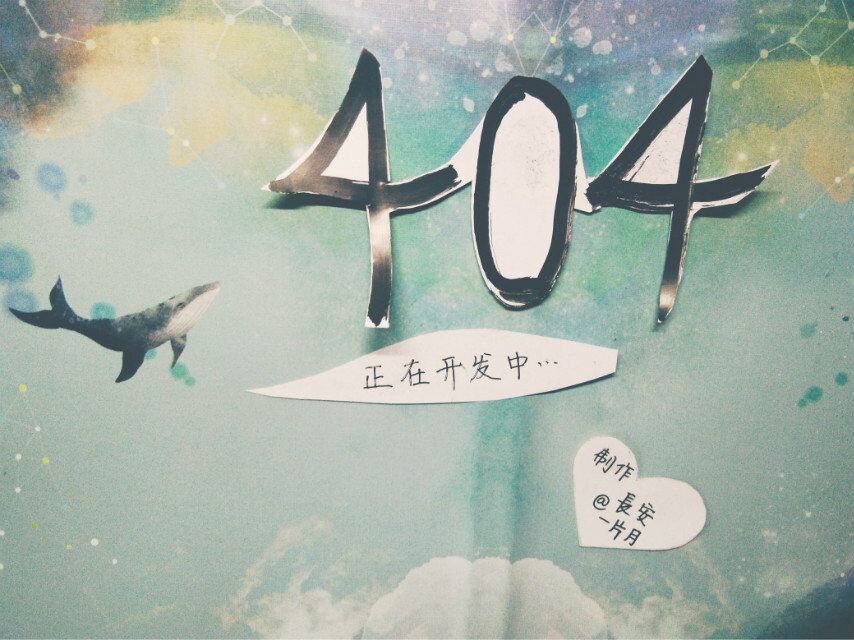 404
正在开发中…
制作
@長安
一片月